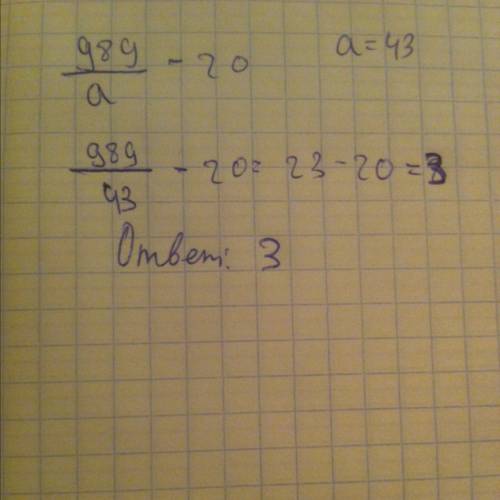 989/a - 20    a = 43
989/43 - 20 = 23 - 20 = 3
Ответ: 3